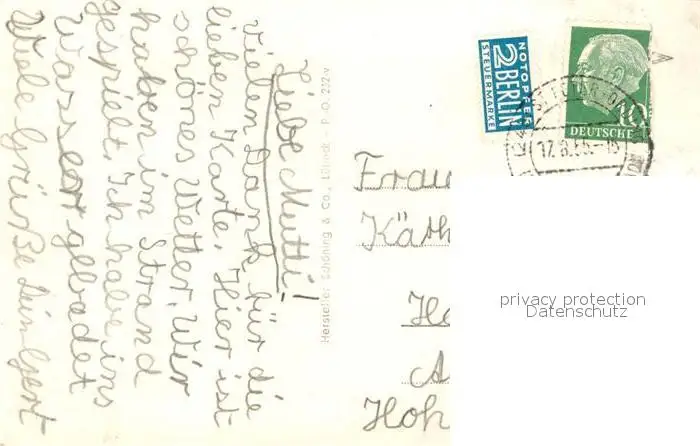 Liebe Mutti!
vielen Dank für die
lieben Karte. Hier ist
schönes Wetter. Wir
haben im Strand
gespielt. Ich habe ins
Wasser gebadet
Viele Grüße Dein Gert
Hersteller: Schöning & Co., Lübeck - P.-O. 232-v
NOTOPFER
2 BERLIN
STEUERMARKE
10
DEUTSCHE
Frau
Käth
He
A
Hoh
privacy protection
Datenschutz